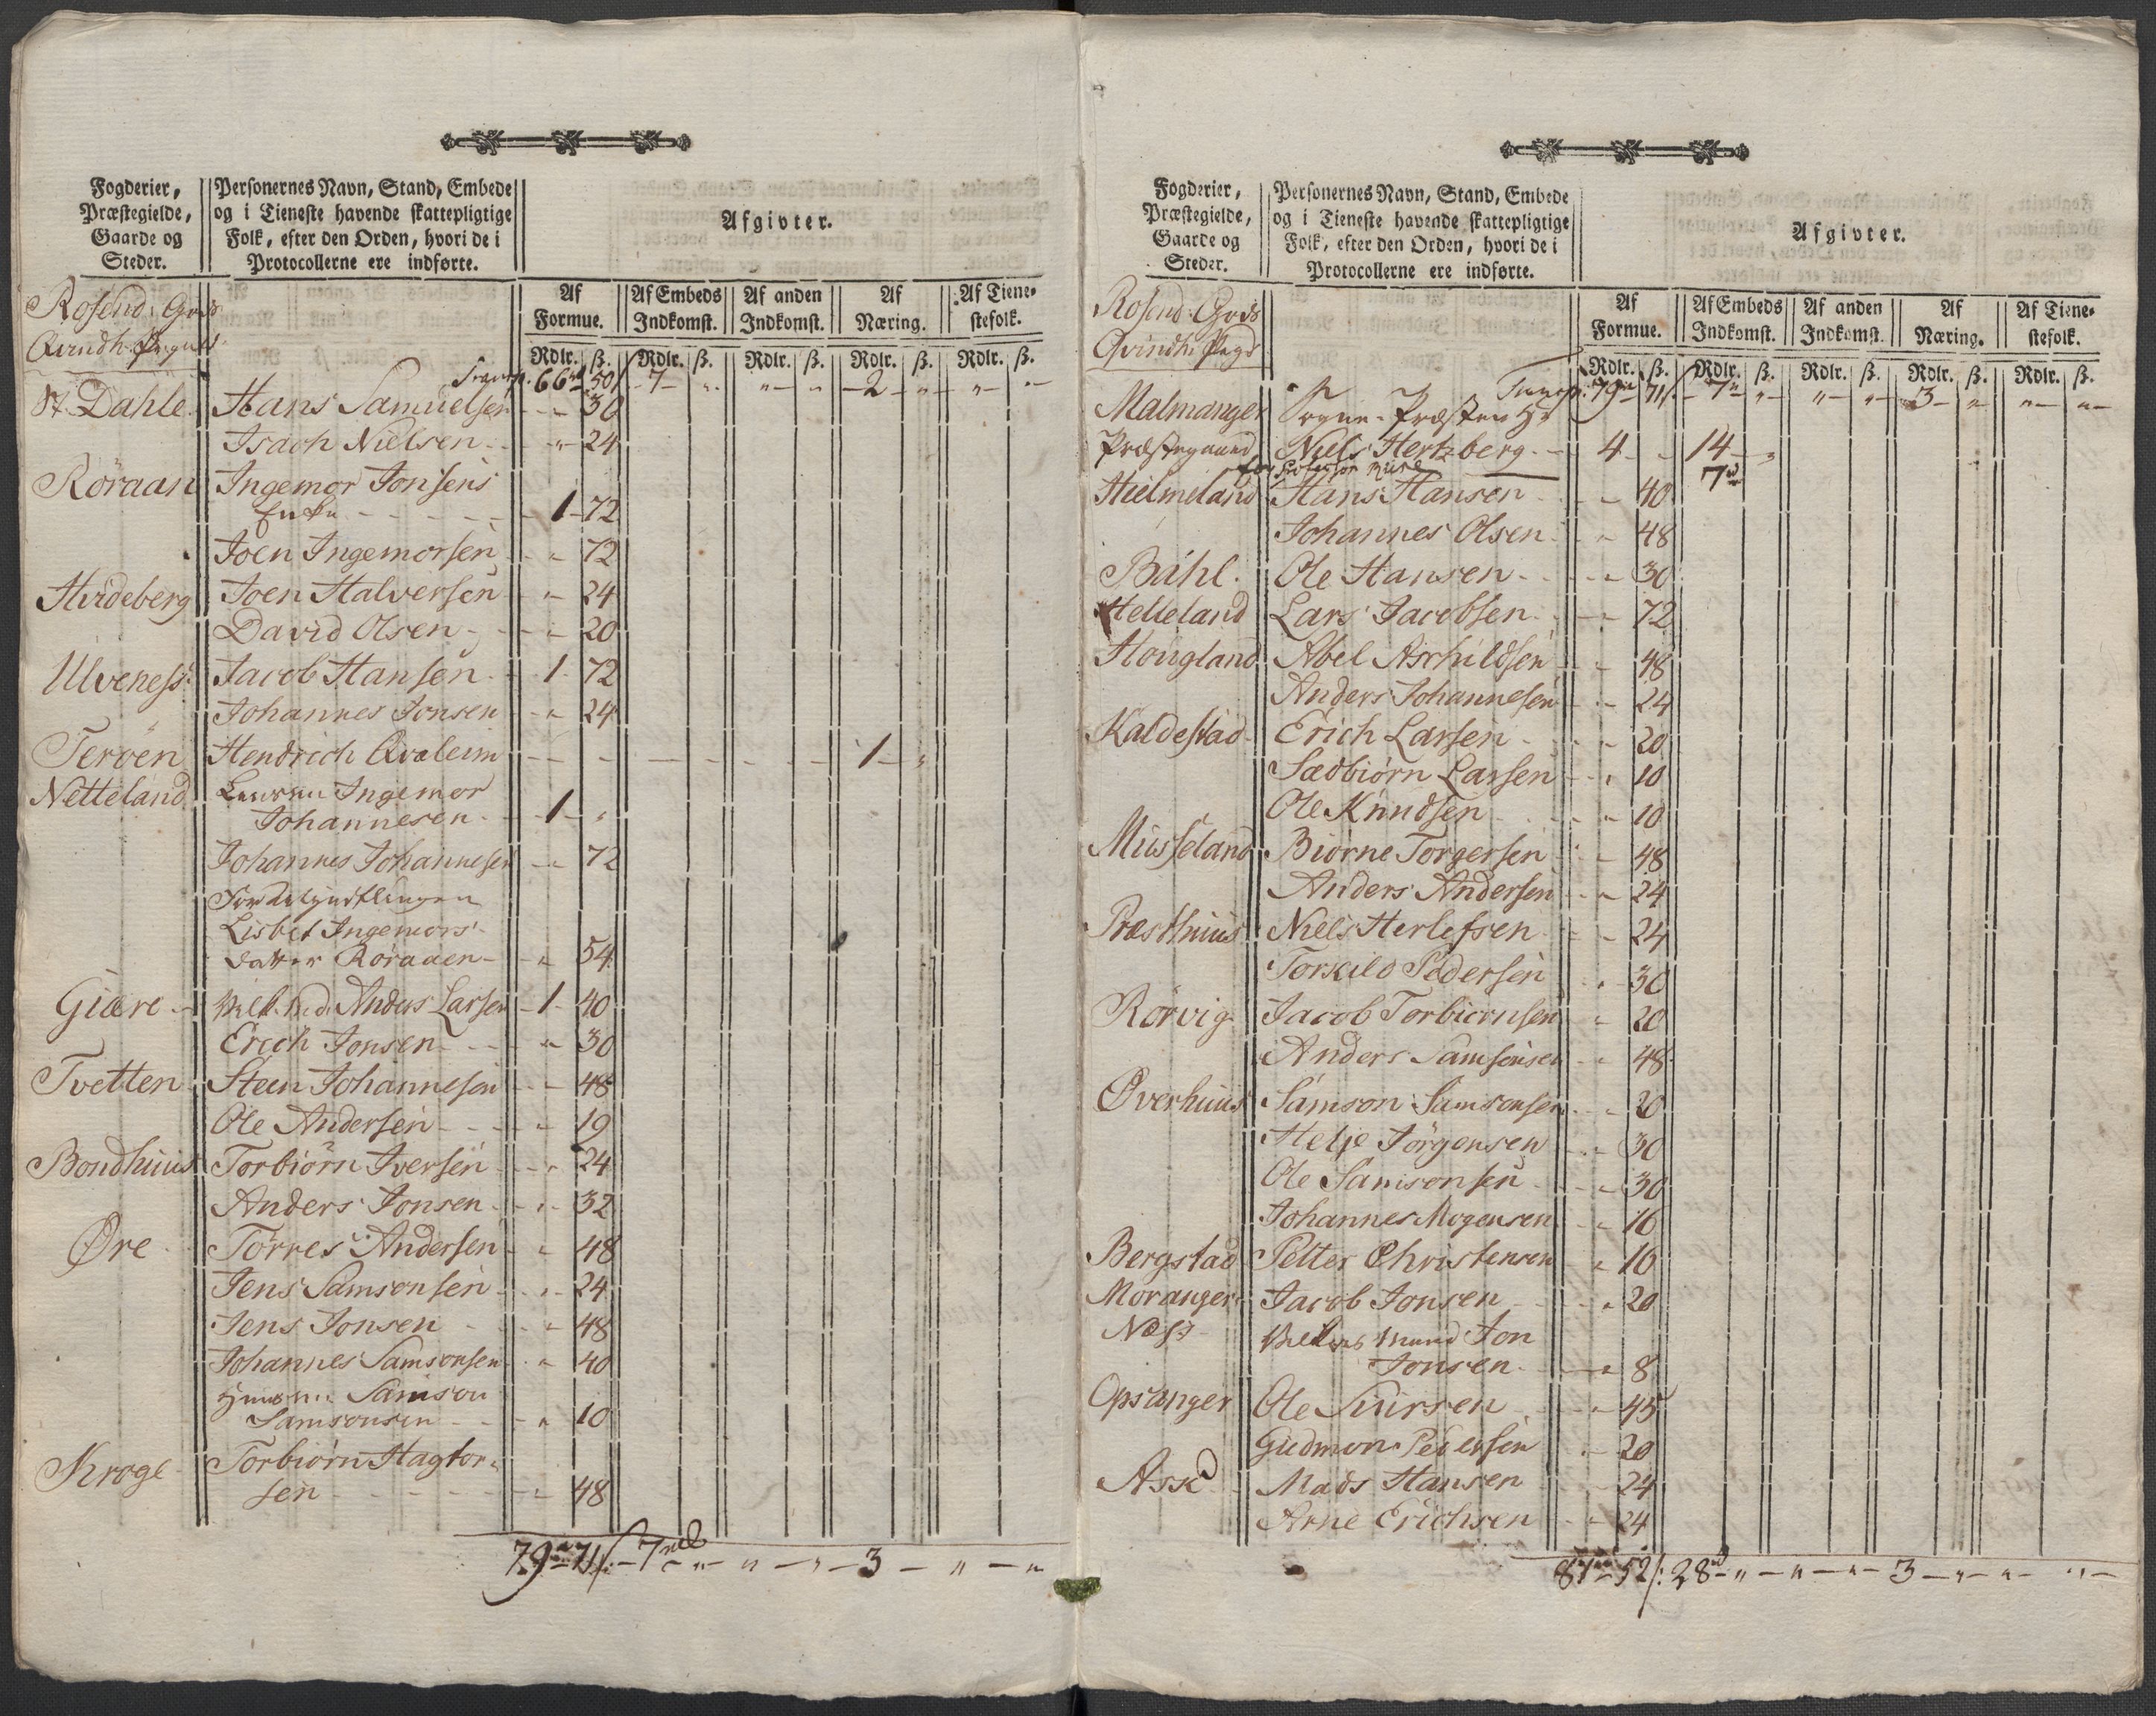 Fogderier, Præstegielde, Gaarde og Steder.
Personernes Navn, Stand, Embede og i Tieneste havende skattepligtige Folk, efter den Orden, hvori de i Protocollerne ere indførte.
Afgivter.
Af Formue. Af Embeds Indkomst. Af anden Indkomst. Af Næring. Af Tiene-stefolk.
Rdlr. ß. Rdlr. ß. Rdlr. ß. Rdlr. ß. Rdlr. ß.
Rosend: Gods
Qvindh:
Transp. 66 50 7 " " " 2 " " "
St. Dahle Hans Samuelsen - 30
Isach Nielsen - " 24
Röraan Ingemor Jonsens
Enke - 1 - 72
Joen Ingemorsen - " 72
Hvideberg Joen Halversen - " 24
David Olsen - " 20
Ulveness Jacob Hansen - 1 - 72
Johannes Jonsen - " 24
Teröen Hendrich Qvaleim - 1 - "
Netteland Ingemor
Johannesen - 1 - "
Johannes Johannesen - " 72
Lisbet Ingemors
datter Röraaen - " 54
Giære - Anders Larsen - 1 - 40
Erich Jonsen - " 30
Tvetten Steen Johannesen - " 48
Ole Andersen - " 19
Bondhuus Torbiörn Iversen - " 24
Anders Jonsen - " 32
Øre Törres Andersen - " 48
Jens Samsonsen - " 24
Jens Jonsen - " 48
Johannes Samsonsen - " 40
Samson
Samsonsen - " 10
Kroge Torbiörn Hagtor-
sen - " 48
79 - 71 ß. - 7 rd - " - " - " - 3 - " - "
Fogderier, Præstegielde, Gaarde og Steder.
Personernes Navn, Stand, Embede og i Tieneste havende skattepligtige Folk, efter den Orden, hvori de i Protocollerne ere indførte.
Afgivter.
Af Formue. Af Embeds Indkomst. Af anden Indkomst. Af Næring. Af Tiene-stefolk.
Rdlr. ß. Rdlr. ß. Rdlr. ß. Rdlr. ß. Rdlr. ß.
Rosend: Gods
Qvindh:
Transp. 79 71 7 " " " 3 " " "
Malmanger Sogne-Præsten Hr
Præstegaard Niels Hertzberg - 4 - " 14 - "
7
Hielmeland Hans Hansen - " 40
Johannes Olsen - " 48
Båhl. Ole Hansen - " 30
Helleland Lars Jacobsen - " 72
Hougland Abel Aschildsen - " 48
Anders Johannesen - " 24
Kaldestad Erich Larsen - " 20
Sædbiörn Larsen - " 10
Ole Knudsen - " 10
Musseland Biörne Torgersen - " 48
Anders Andersen - " 24
Præsthuus Niels Herlefsen - " 24
Torkild Pedersen - " 30
Rörvig Jacob Torbiörnsen - " 20
Anders Samsonsen - " 48
Øverhuus Samson Samsonsen - " 20
Helje Jörgensen - " 30
Ole Samsonsen - " 30
Johannes Mogensen - " 16
Bergstad Petter Christensen - " 16
Moranger- Jacob Jonsen - " 20
Næss Jon
Jonsen - " 8
Opsanger Ole Siursen - " 45
Gudmon Pedersen - " 20
Ask Mads Hansen - " 24
Arne Erichsen - " 24
81 - 52 ß: 28 - " - " - " - 3 - " - " - " -